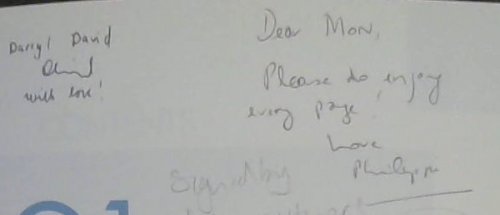 Darryl David
David
with love!
Dear Mom,
Please do enjoy
every page!
Love
Philippa
Signed by